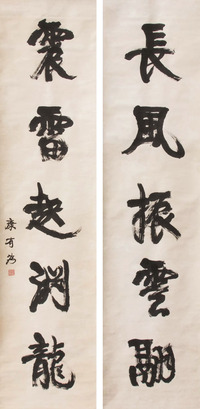 長風振雲翮
震雷起淵龍
康有為